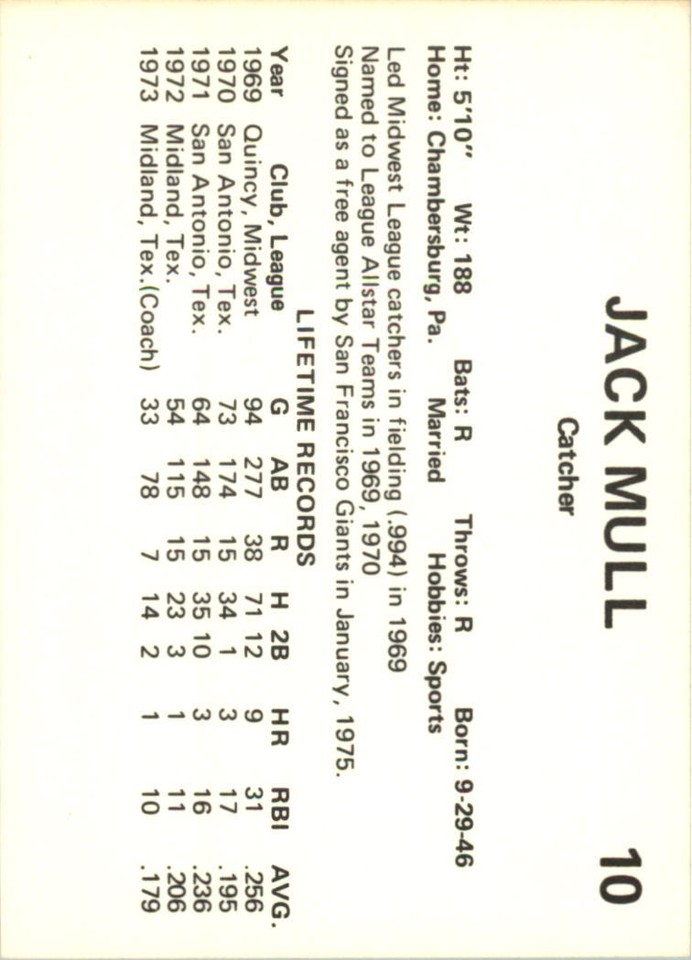 JACK MULL 10
Catcher
Ht: 5'10" Wt: 188 Bats: R Throws: R Born: 9-29-46
Home: Chambersburg, Pa. Married Hobbies: Sports
Led Midwest League catchers in fielding (.994) in 1969
Named to League Allstar Teams in 1969, 1970
Signed as a free agent by San Francisco Giants in January, 1975.
LIFETIME RECORDS
Year Club, League G AB R H 2B HR RBI AVG.
1969 Quincy, Midwest 94 277 38 71 12 9 31 .256
1970 San Antonio, Tex. 73 174 15 34 1 3 17 .195
1971 San Antonio, Tex. 64 148 15 35 10 3 16 .236
1972 Midland, Tex. 54 115 15 23 3 1 11 .206
1973 Midland, Tex.(Coach) 33 78 7 14 2 1 10 .179